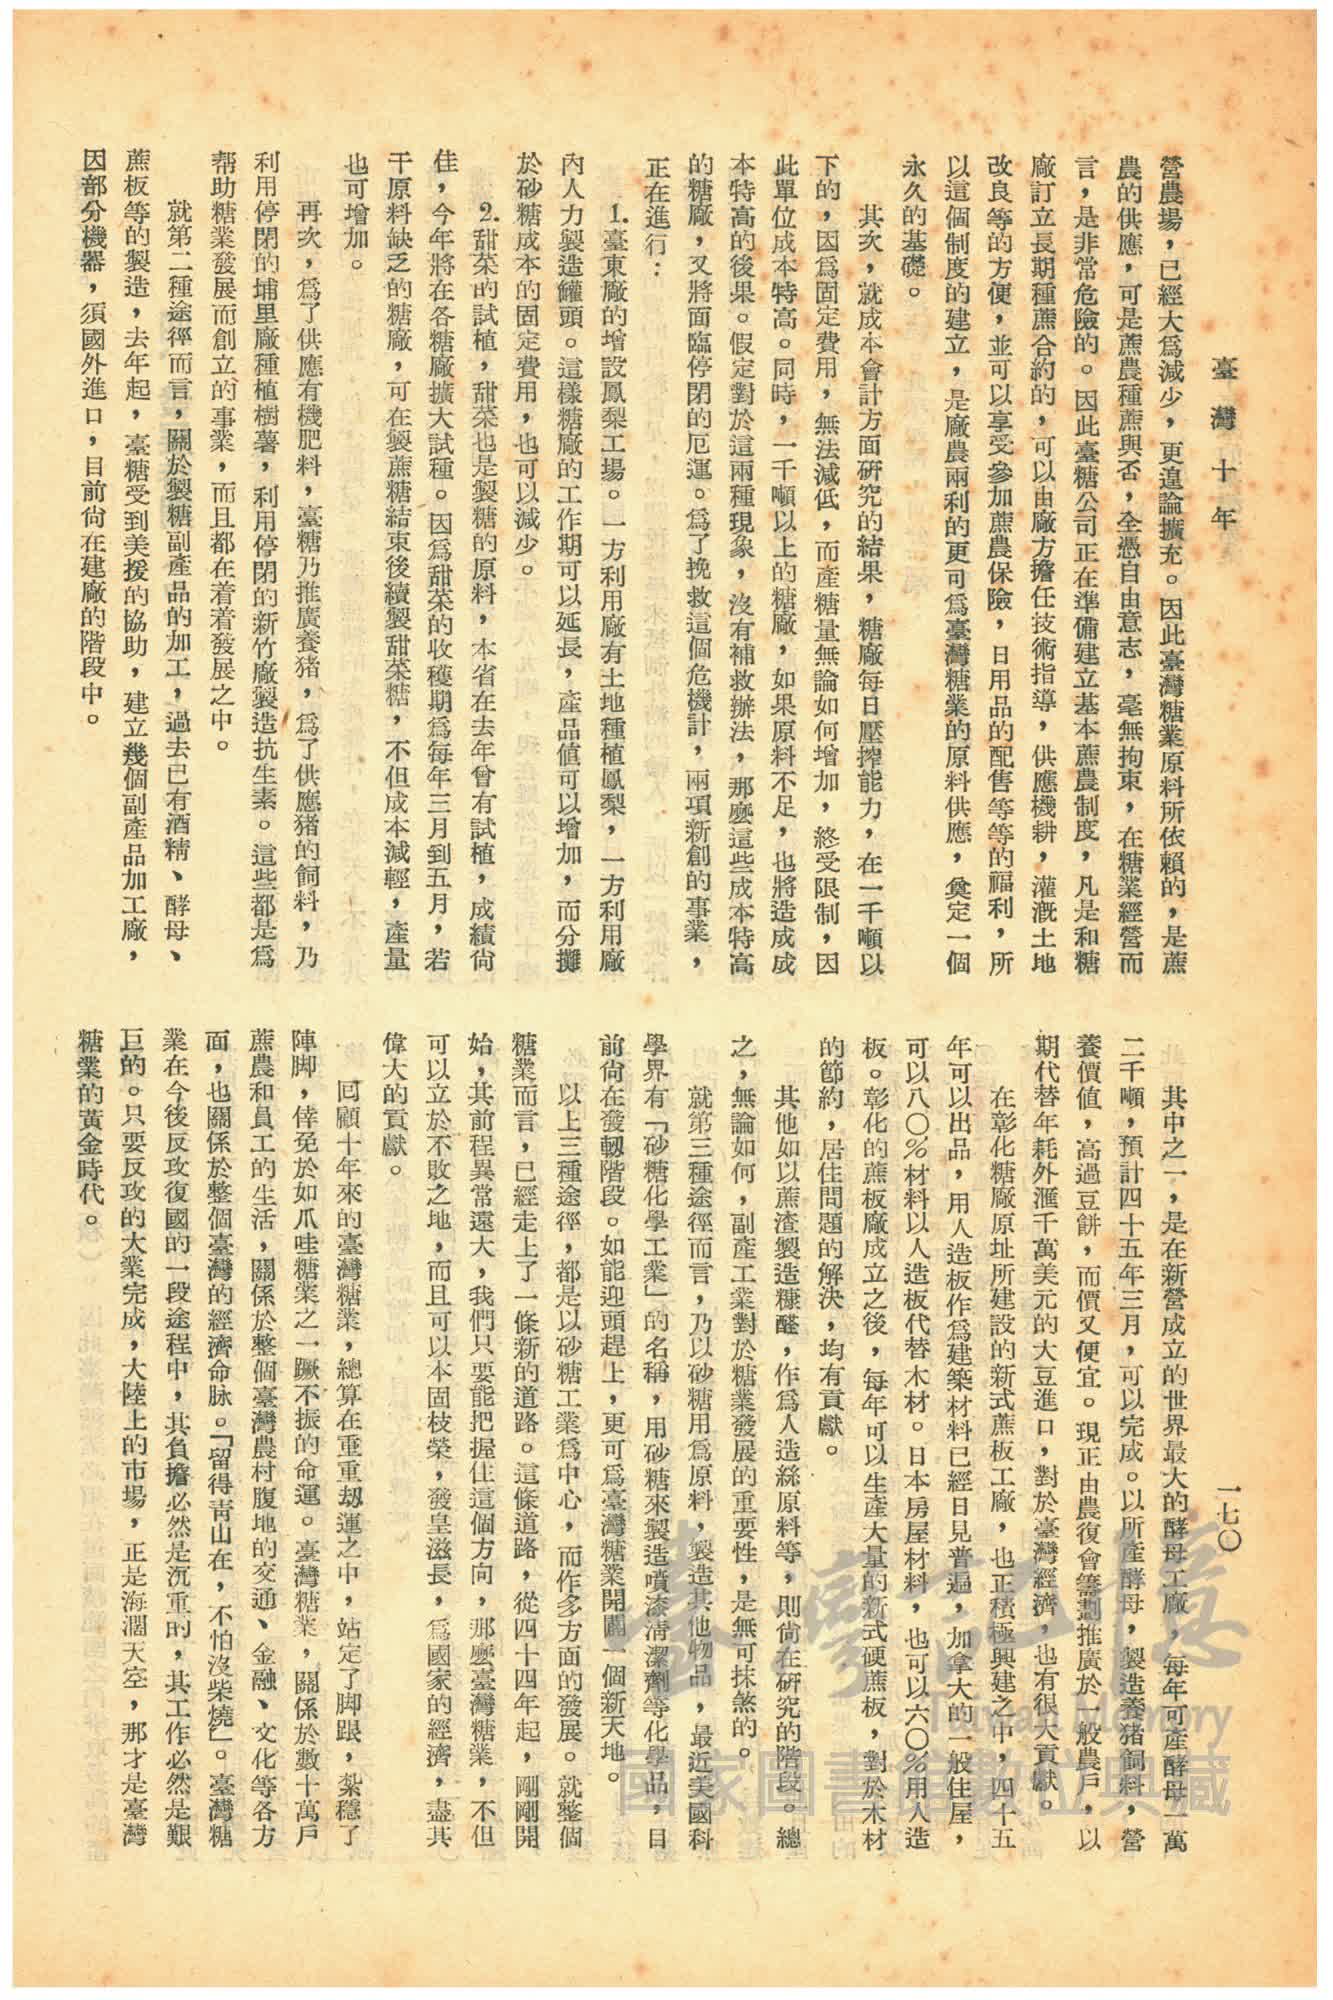 臺灣十年
一七〇
營農場，已經大為減少，更遑論擴充。因此臺灣糖業原料所依賴的，是蔗
農的供應，可是蔗農種蔗與否，全憑自由意志，毫無拘束，在糖業經營而
言，是非常危險的。因此臺糖公司正在準備建立基本蔗農制度，凡是和糖
廠訂立長期種蔗合約的，可以由廠方擔任技術指導，供應機耕，灌漑土地
改良等的方便，並可以享受參加蔗農保險，日用品的配售等等的福利，所
以這個制度的建立，是廠農兩利的更可為臺灣糖業的原料供應，奠定一個
永久的基礎。
其次，就成本會計方面研究的結果，糖廠每日壓搾能力，在一千噸以
下的，因為固定費用，無法減低，而產糖量無論如何增加，終受限制，因
此單位成本特高。同時，一千噸以上的糖廠，如果原料不足，也將造成成
本特高的後果。假定對於這兩種現象，沒有補救辦法，那麼這些成本特高
的糖廠，又將面臨停閉的厄運。為了挽救這個危機計，兩項新創的事業，
正在進行：
1.臺東廠的增設鳳梨工場。一方利用廠有土地種植鳳梨，一方利用廠
內人力製造罐頭。這樣糖廠的工作期可以延長，產品值可以增加，而分攤
於砂糖成本的固定費用，也可以減少。
2.甜菜的試植，甜菜也是製糖的原料，本省在去年曾有試植，成績尙
佳，今年將在各糖廠擴大試種。因為甜菜的收穫期為每年三月到五月，若
干原料缺乏的糖廠，可在製蔗糖結束後續製甜菜糖，不但成本減輕，產量
也可增加。
再次，為了供應有機肥料，臺糖乃推廣養猪，為了供應猪的飼料，乃
利用停閉的埔里廠種植樹薯，利用停閉的新竹廠製造抗生素。這些都是為
帮助糖業發展而創立的事業，而且都在着着發展之中。
就第二種途徑而言，關於製糖副產品的加工，過去已有酒精、酵母、
蔗板等的製造，去年起，臺糖受到美援的協助，建立幾個副產品加工廠，
因部分機器，須國外進口，目前尙在建廠的階段中。
其中之一，是在新營成立的世界最大的酵母工廠，每年可產酵母一萬
二千噸，預計四十五年三月，可以完成。以所產酵母，製造養猪飼料，營
養價值，高過豆餅，而價又便宜。現正由農復會籌劃推廣於一般農戶，以
期代替年耗外滙千萬美元的大豆進口，對於臺灣經濟，也有很大貢獻。
在彰化糖廠原址所建設的新式蔗板工廠，也正積極興建之中，四十五
年可以出品，用人造板作為建築材料已經日見普遍，加拿大的一般住屋，
可以八〇％材料以人造板代替木材。日本房屋材料，也可以六〇％用人造
板。彰化的蔗板廠成立之後，每年可以生產大量的新式硬蔗板，對於木材
的節約，居住問題的解決，均有貢獻。
其他如以蔗渣製造糠醛，作為人造絲原料等，則尙在研究的階段。總
之，無論如何，副產工業對於糖業發展的重要性，是無可抹煞的。
就第三種途徑而言，乃以砂糖用為原料，製造其他物品，最近美國科
學界有「砂糖化學工業」的名稱，用砂糖來製造噴漆淸潔劑等化學品，目
前尙在發軔階段。如能迎頭趕上，更可為臺灣糖業開闢一個新天地。
以上三種途徑，都是以砂糖工業為中心，而作多方面的發展。就整個
糖業而言，已經走上了一條新的道路。這條道路，從四十四年起，剛剛開
始，其前程異常遠大，我們只要能把握住這個方向，那麼臺灣糖業，不但
可以立於不敗之地，而且可以本固枝榮，發皇滋長，為國家的經濟，盡其
偉大的貢獻。
回顧十年來的臺灣糖業，總算在重重劫運之中，站定了脚跟，紮穩了
陣脚，倖免於如爪哇糖業之一蹶不振的命運。臺灣糖業，關係於數十萬戶
蔗農和員工的生活，關係於整個臺灣農村腹地的交通、金融、文化等各方
面，也關係於整個臺灣的經濟命脉。「留得靑山在，不怕沒柴燒」。臺灣糖
業在今後反攻復國的一段途程中，其負擔必然是沉重的，其工作必然是艱
巨的。只要反攻的大業完成，大陸上的市場，正是海濶天空，那才是臺灣
糖業的黃金時代。
臺灣記憶
Taiwan Memory
國家圖書館數位典藏